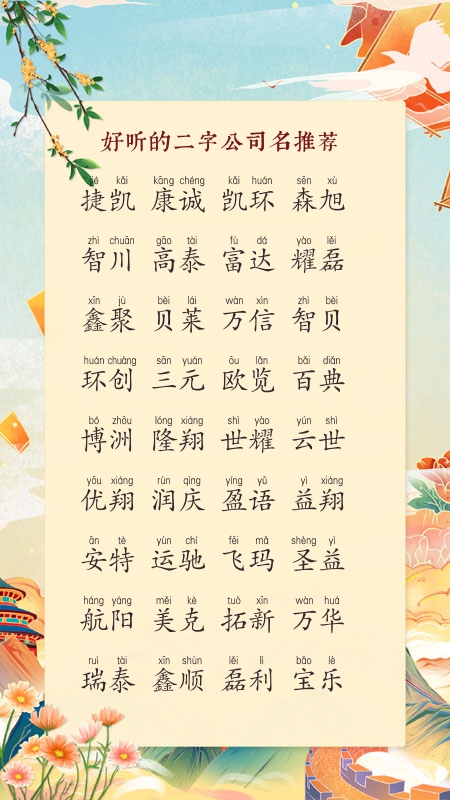 好听的二字公司名推荐
jié kǎi kāng chéng kǎi huán sēn xù
捷凯 康诚 凯环 森旭
zhì chuān gāo tài fù dá yào lěi
智川 高泰 富达 耀磊
xīn jù bèi lái wàn xìn zhì bèi
鑫聚 贝莱 万信 智贝
huán chuàng sān yuán ōu lǎn bǎi diǎn
环创 三元 欧览 百典
bó zhōu lóng xiáng shì yào yún shì
博洲 隆翔 世耀 云世
yōu xiáng rùn qìng yíng yǔ yì xiáng
优翔 润庆 盈语 益翔
ān tè yùn chí fēi mǎ shèng yì
安特 运驰 飞玛 圣益
háng yáng měi kè tuò xīn wàn huá
航阳 美克 拓新 万华
ruì tài xīn shùn lěi lì bǎo lè
瑞泰 鑫顺 磊利 宝乐